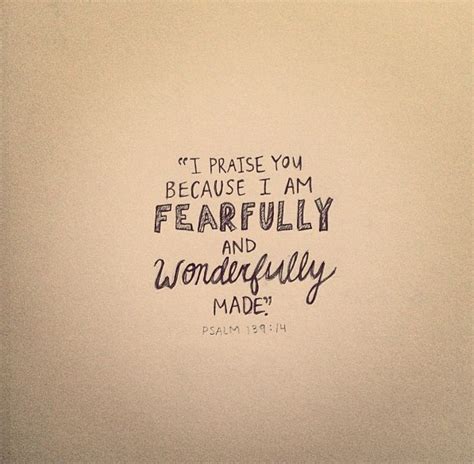 "I PRAISE YOU
BECAUSE I AM
FEARFULLY
AND
Wonderfully
MADE."
PSALM 139:14